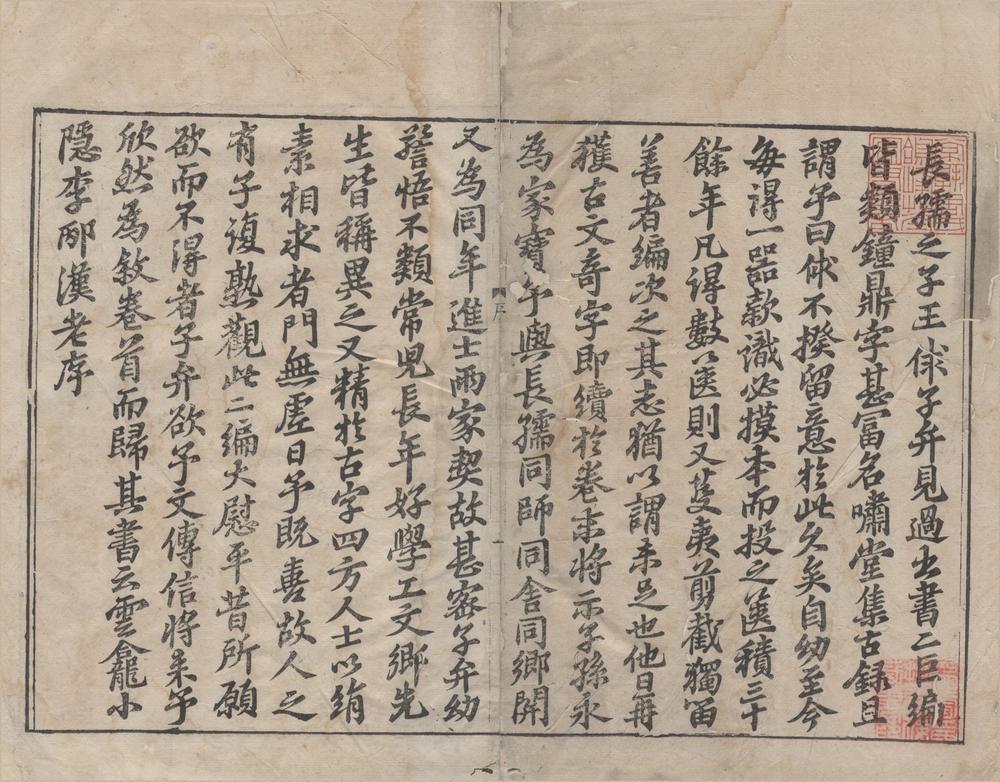 長孺之子王俅子弁見過出書二巨編
皆類鐘鼎字甚冨名嘯堂集古録且
謂予曰俅不揆留意於此久矣自幼至今
每得一器款識必摸本而投之篋積三十
餘年凡得數篋則又芟夷剪截獨留
善者編次之其志猶以謂未足也他日再
獲古文奇字即續於卷末將示子孫永
為家寶予與長孺同師同舍同郷開
序
一
又為同年進士兩家契故甚宻子弁幼
警悟不類常児長年好學工文郷先
生皆稱異之又精於古字四方人士以絹
素相求者門無虗日予既喜故人之
有子復熟觀此二編大慰平昔所願
欲而不得者子弁欲予文傳信将来予
欣然為敘卷首而歸其書云雲龕小
隱李邴漢老序